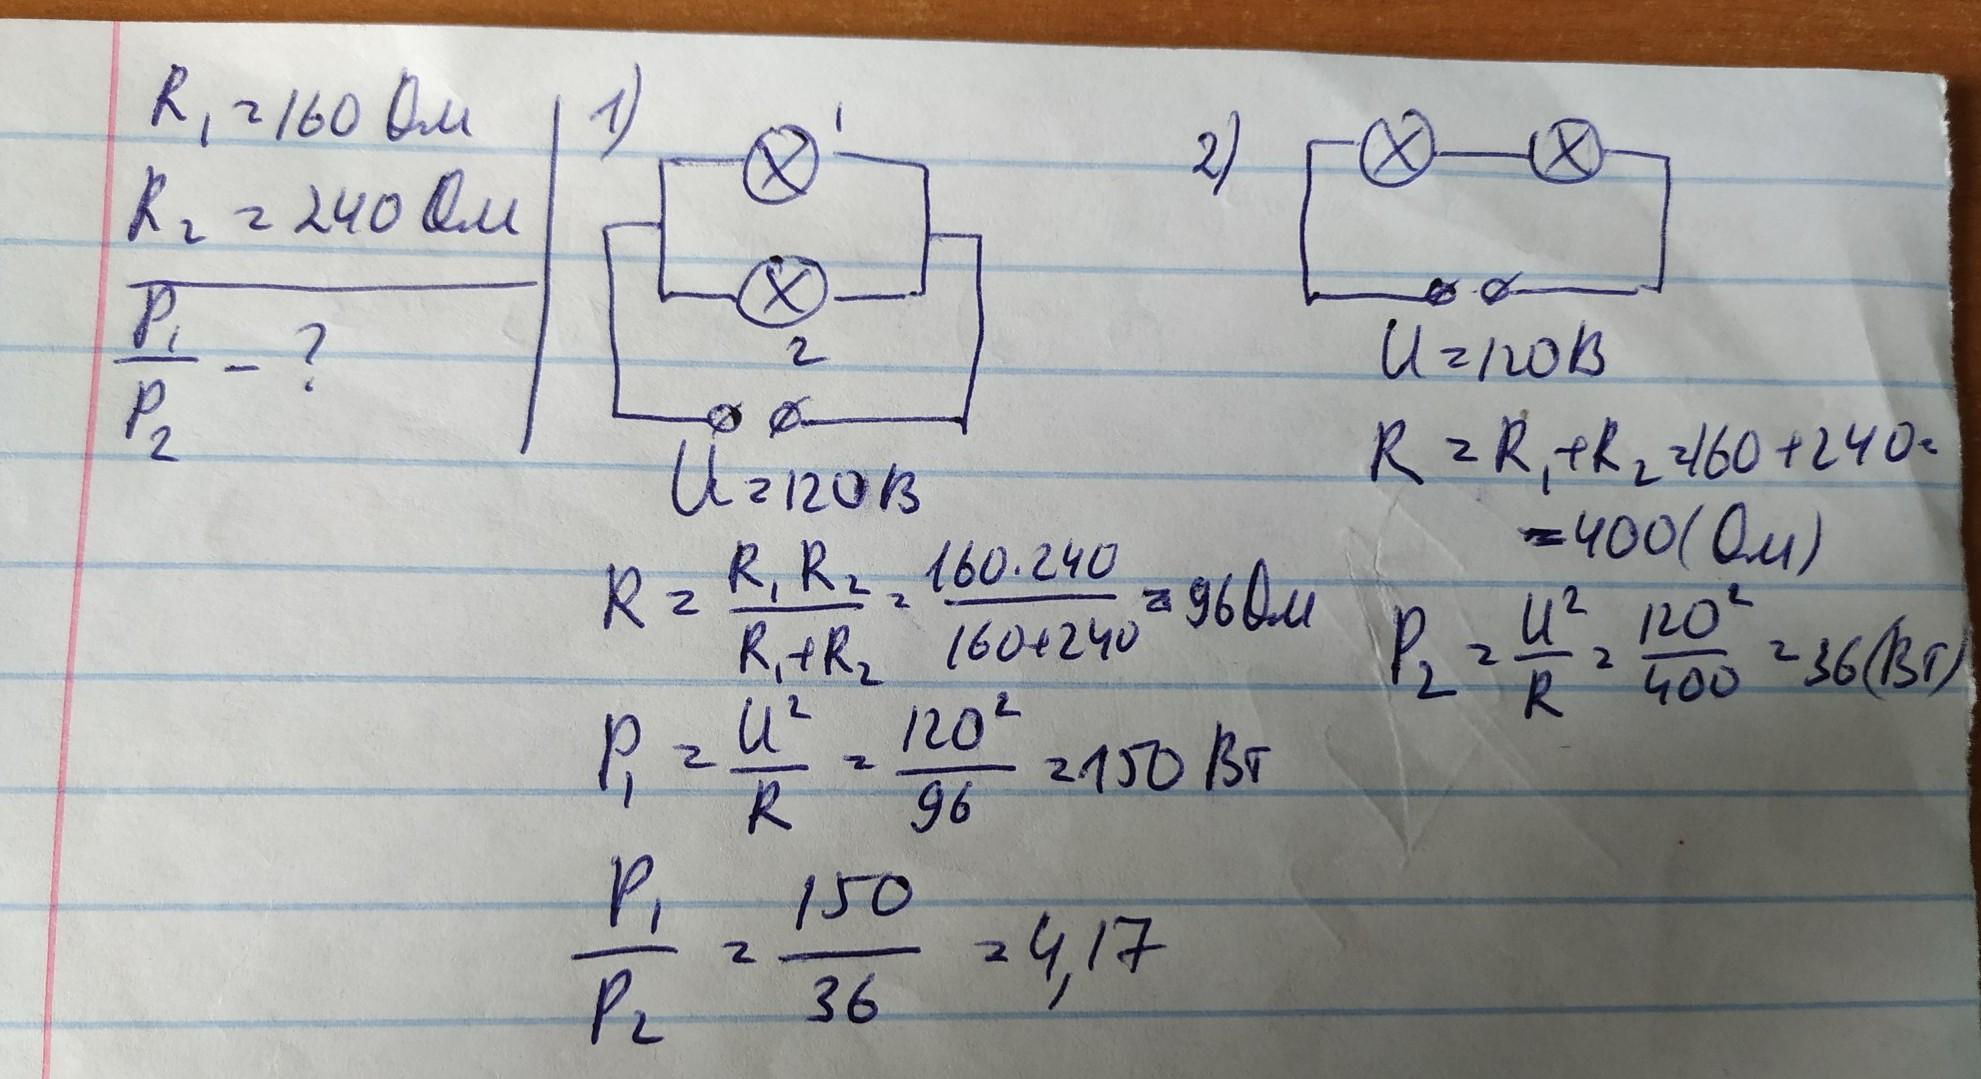 R₁ = 160 Ом
R₂ = 240 Ом
P₁/P₂ - ?
1)
1
2
U = 120 В
R = R₁ R₂ / R₁+R₂ = 160·240 / 160+240 = 96 Ом
P₁ = U² / R = 120² / 96 = 150 Вт
P₁ / P₂ = 150 / 36 = 4,17
2)
U = 120 В
R = R₁+R₂ = 160+240 =
= 400 (Ом)
P₂ = U² / R = 120² / 400 = 36 (Вт)